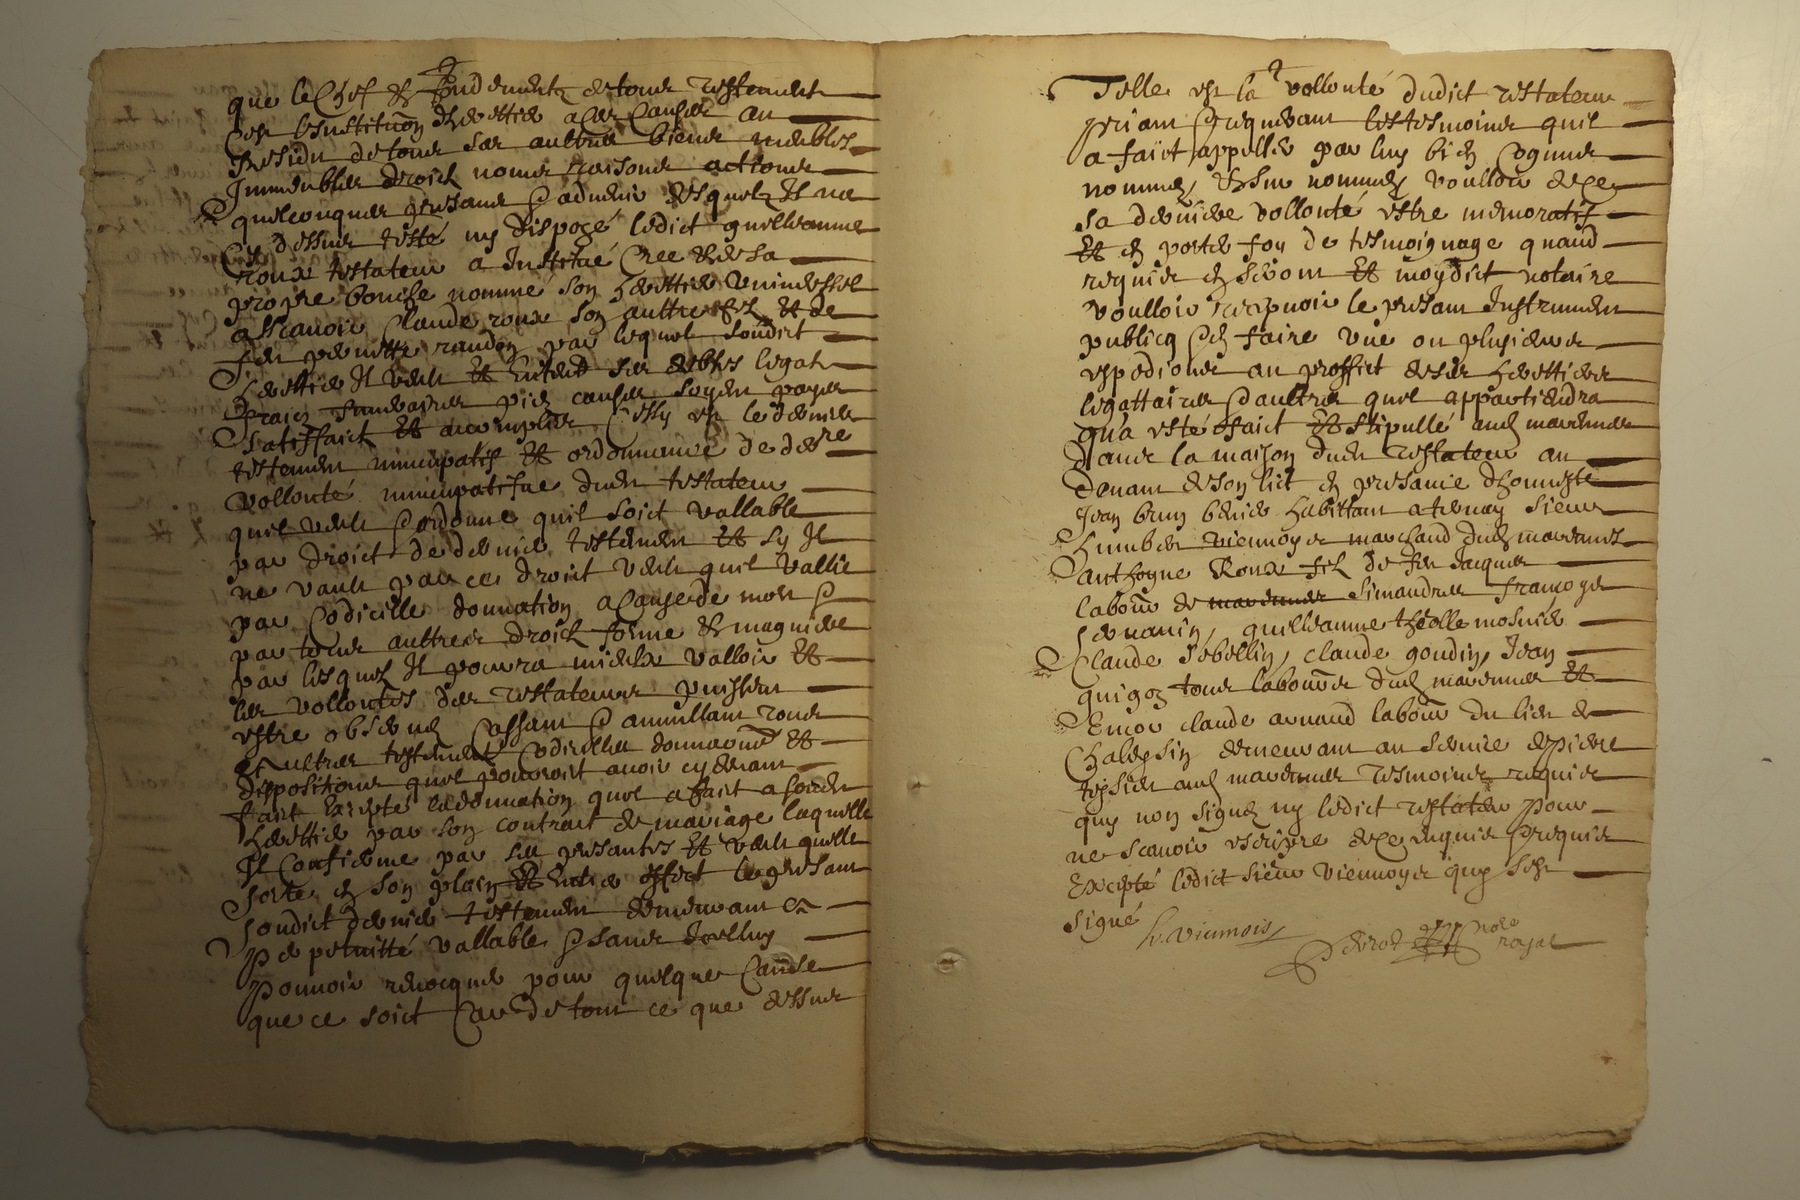 que le Chef & fondementz de tous testament
Cest linstitution dheritier a ces Causes au
Residu de tous ses aultres biens meubles
Immeubles droictz noms raisons actions
quelconques presans & advenir desquelz Il na
Cy dessus testé ny dispozé ledict guilleaume
roux testateur a Institué Cree & de sa
propre bouche nommé son herittier Universel
a scavoir Claude roux son aultre filz & de
feu pernette randon par lequel sondict
herittier Il veult Et Entend ses debtes legatz
fraiz funeraires piez causes soyent payes
satisfaict Et accomplies Cessy est le dernier
testement nuncupatif Et ordonnance de der re
vollonté nuncupatifue dudt testateur
quil veult & ordonne quil soict vallable
par droict de dernier testement Et sy Il
ne vault par ce droict veult quil vallie
par Codicille donnation a cause de mort &
par tous aultres droictz forme & magniere
par lesquelz Il pourra mieulx valloir Et
les vollontes des testateurs puissent
estre observez Cassant & annullant tous
Et aultres testement Codicilles donnaons Et
dispositions quil pourroit avoir cy devant
fait Excepté la donnation quil a fait a sondt
herittier par son contract de mariage laquelle
Il Confirme par ses presantes Et veult quelle
sorte en son plain Et Entier effect le presant
sondict dernier testement demeurant en
perpetuitté vallable & sans Icelluy
pouvoir revocquer pour quelque Cause
que ce soict Car de tout ce que dessus
Telle est la vollonté dudict testateur
priant & requerant les tesmoins quil
a faict appeller par luy bien Cognus
nommez & sur nommez voulloir de ce
sa derniere vollonté estre memoratif
Et en porter foy de tesmoignage quand
requis en seront Et moydict notaire
voulloir recepvoir le presant Instrument
publicq & en faire une ou plusieurs
expedions au proffict de ses herittiers
legattaires & aultres quil appartiendra
qua esté faict Et stipullé aud marennes
dans la maison dudt testateur au
devant de son lict en presance dhonneste
Jean brun berier habittant a ternay sieur
humbert viennoys marchand dud marennes
anthoyne Roux filz de feu Jacques
labour de marennes simandres francoys
servanin, guilleaume theolle mosnier
Claude Sebellin, claude goudin, Jean
quigoz tous laboures dud marennes Et
Encor claude arnaud labour du lieu de
Chaleysin demeurant au service de pierre
teysier aud marennes tesmoins requis
quy non signez ny ledict testateur pour
ne scavoir escripre de ce enquis & requis
Excepté ledict sieur viennoys quy sest
signé
h. viennois
Perrod nore
royal